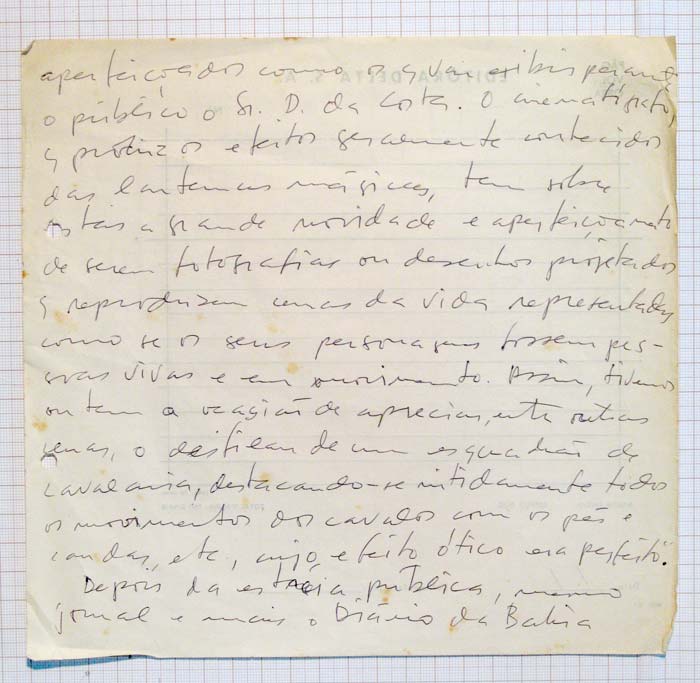 aperfeiçoados como os q vai exibir perante
o público o Sr. D. da Costa. O cinematógrafo,
q produz os efeitos geralmente conhecidos
das lanternas mágicas, tem sobre
estas a grande novidade e aperfeiçoamento
de serem fotografias ou desenhos projetados
q reproduzem cenas da vida representadas
como se os seus personagens fossem pes-
soas vivas e em movimento. Assim, tivemos
ontem a ocasião de apreciar, entre outras
cenas, o desfilar de um esquadrão de
cavalaria, destacando-se nitidamente todos
os movimentos dos cavalos com os pés e
caudas, etc, cujo efeito ótico era perfeito".
Depois da estréia pública, mesmo
jornal e mais o Diário da Bahia